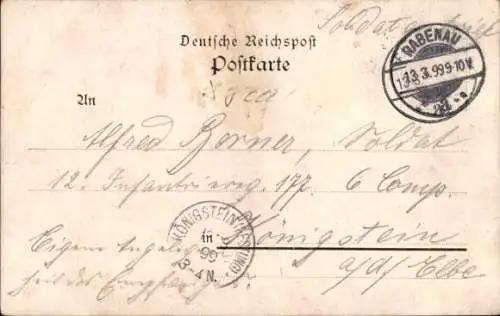 Soldatenbrief
Deutsche Reichspost
Postkarte
RABENAU
13.3.99 9-10V.
An
Alfred Borner, Soldat
12. Infanteriereg. 177. 6 Comp.
KÖNIGSTEIN (FESTUNG)
99
3-4 N.
in Königstein
a/d/ Elbe
Eigene Angelegen
heit des Empfängers.